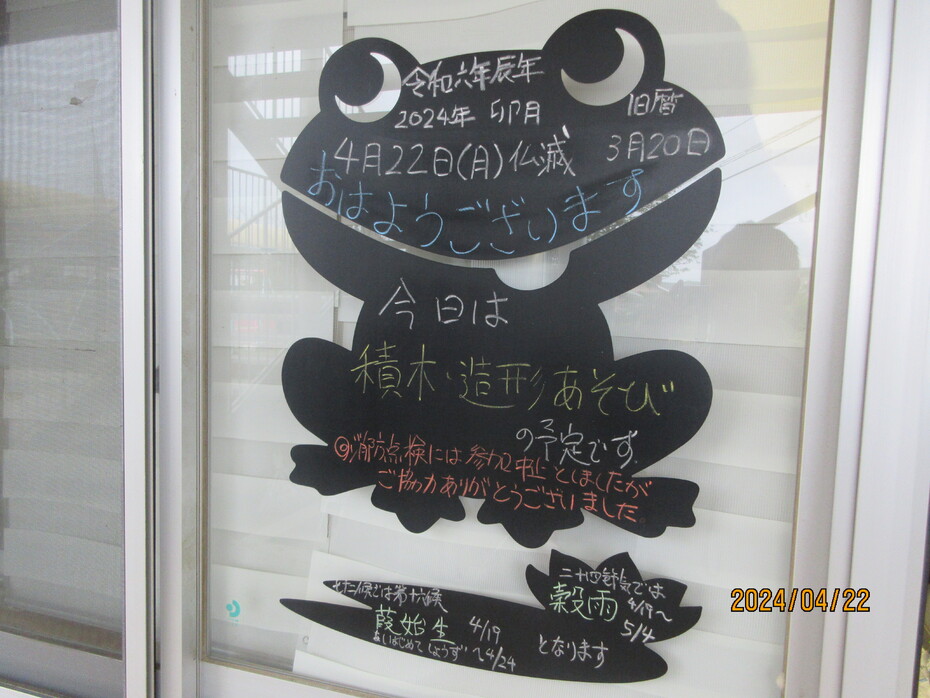 令和六年辰年
2024年 卯月
旧暦
3月20日
4月22日(月)仏滅
おはようございます
今日は
積木・造形あそび
の予定です。
◎消防点検には参加中止としましたが
ご協力ありがとうございました。
七十二候では第十六候
葭始生
あしはじめてしょうず
4/19
〜4/24
二十四節気では
穀雨
4/19〜
5/4
となります
2024/04/22